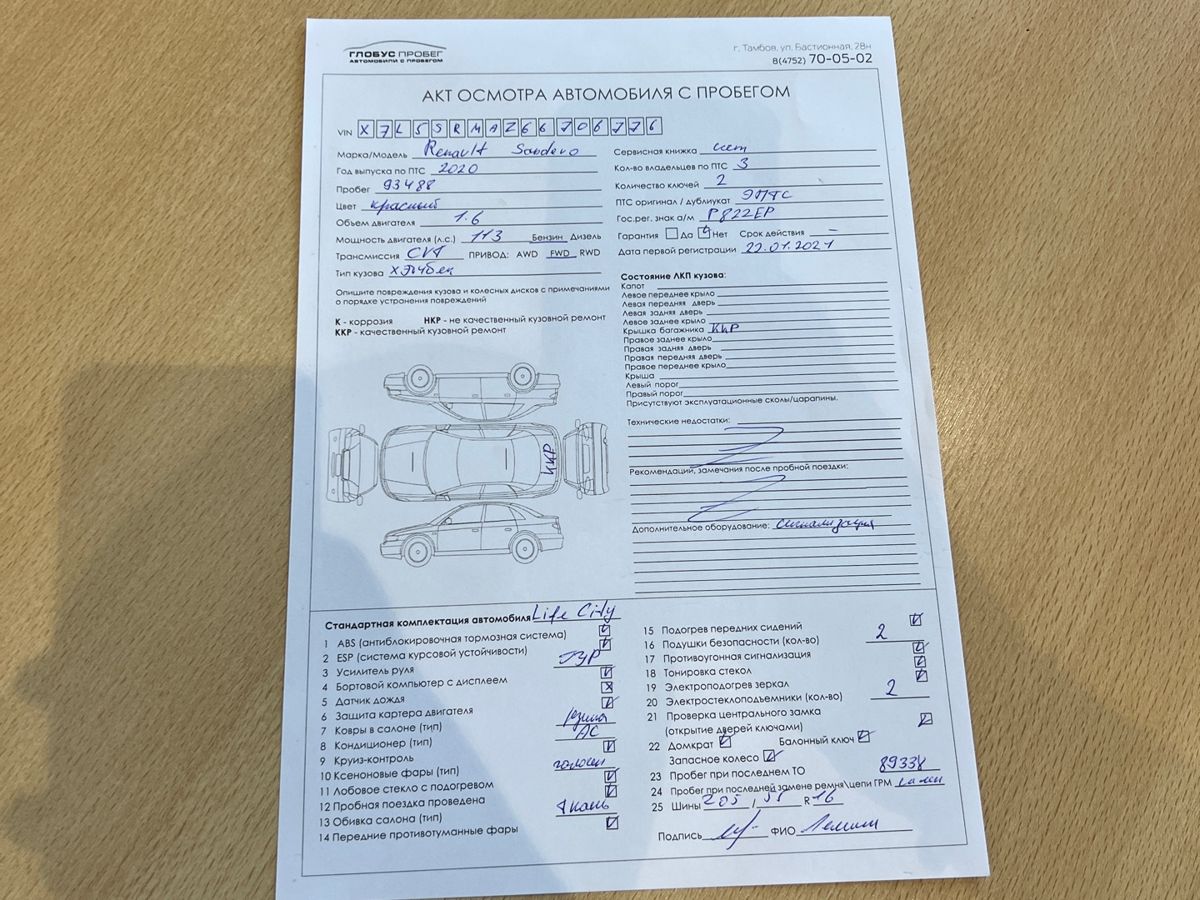 ГЛОБУС ПРОБЕГ
АВТОМОБИЛИ С ПРОБЕГОМ
г. Тамбов, ул. Бастионная, 28н
8(4752) 70-05-02
АКТ ОСМОТРА АВТОМОБИЛЯ С ПРОБЕГОМ
VIN X7L5SRMAZ66706776
Марка/Модель Renault Sandero
Год выпуска по ПТС 2020
Пробег 93488
Цвет красный
Объем двигателя 1.6
Мощность двигателя (л.с.) 113 Бензин Дизель
Трансмиссия CVT ПРИВОД: AWD FWD RWD
Тип кузова хэтчбек
Опишите повреждения кузова и колесных дисков с примечаниями
о порядке устранения повреждений
К - коррозия НКР - не качественный кузовной ремонт
ККР - качественный кузовной ремонт
ККР
Сервисная книжка нет
Кол-во владельцев по ПТС 3
Количество ключей 2
ПТС оригинал / дубликат ЭПТС
Гос.рег. знак а/м Р822ЕР
Гарантия Да Нет Срок действия -
Дата первой регистрации 22.01.2021
Состояние ЛКП кузова:
Капот
Левое переднее крыло
Левая передняя дверь
Левая задняя дверь
Левое заднее крыло
Крышка багажника ККР
Правое заднее крыло
Правая задняя дверь
Правая передняя дверь
Правое переднее крыло
Крыша
Левый порог
Правый порог
Присутствуют эксплуатационные сколы/царапины.
Технические недостатки:
Рекомендаций, замечания после пробной поездки:
Дополнительное оборудование: сигнализация
Стандартная комплектация автомобиля Life City
1 ABS (антиблокировочная тормозная система)
2 ESP (система курсовой устойчивости)
3 Усилитель руля ГУР
4 Бортовой компьютер с дисплеем
5 Датчик дождя
6 Защита картера двигателя
7 Ковры в салоне (тип) резина
8 Кондиционер (тип) AC
9 Круиз-контроль
10 Ксеноновые фары (тип) галоген
11 Лобовое стекло с подогревом
12 Пробная поездка проведена
13 Обивка салона (тип) ткань
14 Передние противотуманные фары
15 Подогрев передних сидений
16 Подушки безопасности (кол-во) 2
17 Противоугонная сигнализация
18 Тонировка стекол
19 Электроподогрев зеркал
20 Электростеклоподъемники (кол-во) 2
21 Проверка центрального замка
(открытие дверей ключами)
22 Домкрат Балонный ключ
Запасное колесо
23 Пробег при последнем ТО 89338
24 Пробег при последней замене ремня\цепи ГРМ
25 Шины 205 / 55 R 16
Подпись ФИО